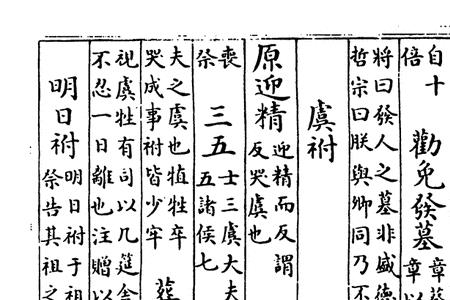 自十
倍
勸免發墓
章
章以
將曰發人之墓非盛德
哲宗曰朕與卿同乃不
虞祔
原迎精
迎精而反謂
反哭虞也
喪
祭
三五
士三虞大夫
五諸侯七
夫之虞也犆牲卒
哭成事祔皆少牢
葬
視虞牲有司以几筵舍
不忍一日離也注贈以
明日祔
明日祔于祖
祭告其祖之